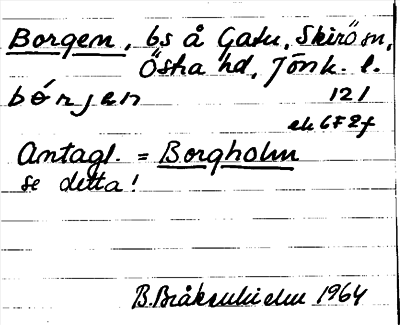 Borgen, bs å Gatu, Skirö sn,
Östra hd, Jönk. l.
börjen 121
ek 6F2f
Antagl. = Borgholm
se detta!
B. 1964